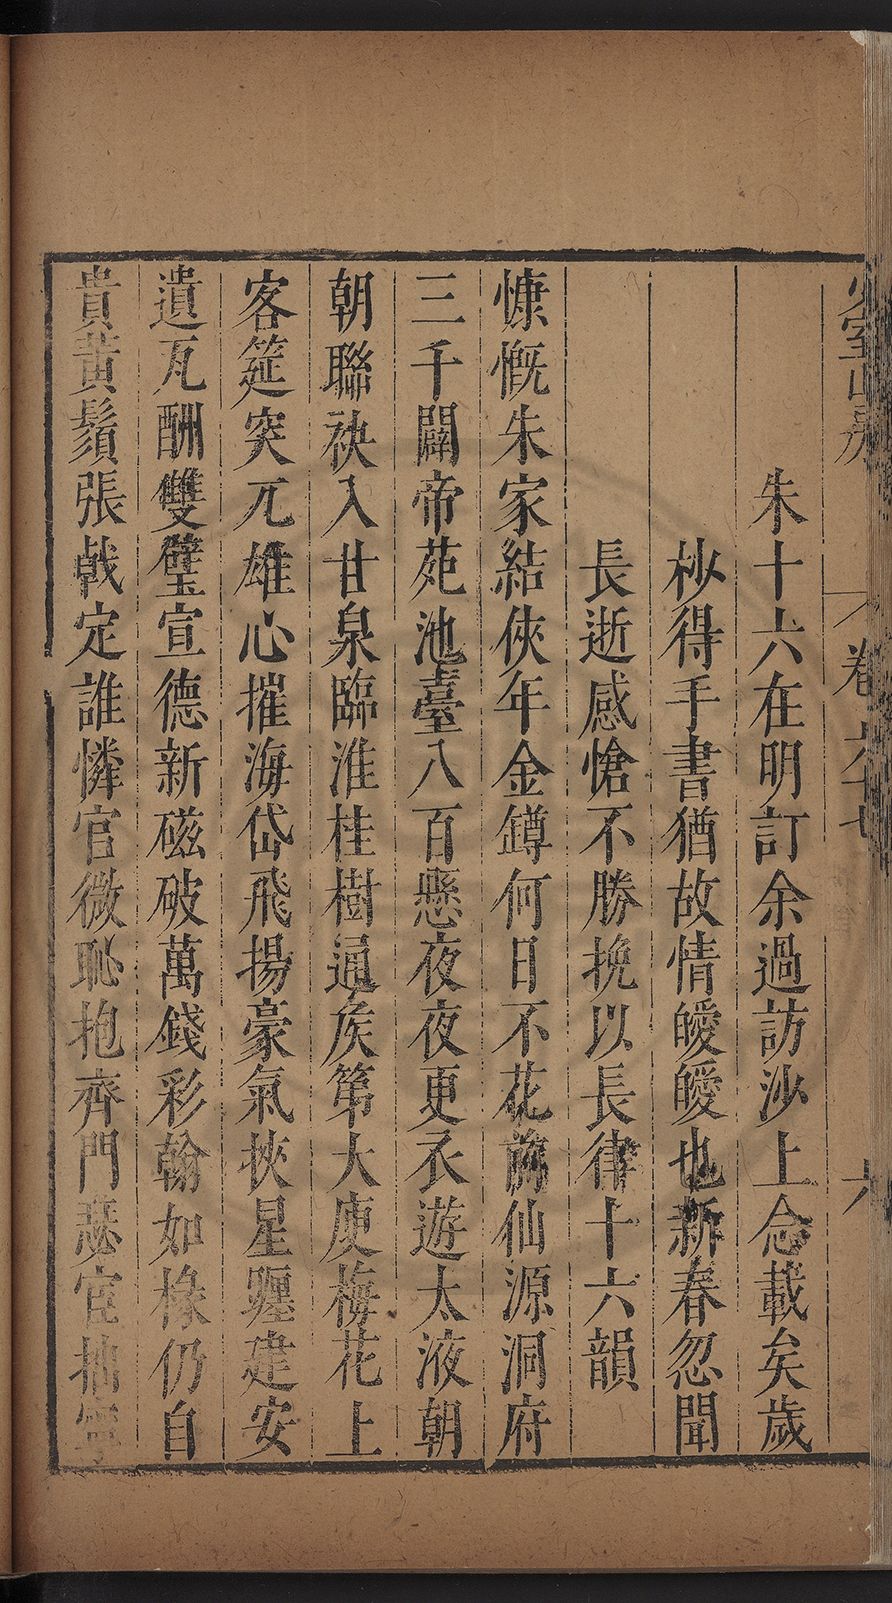 少室山房
卷六十七
六
朱十六在明訂余過訪沙上念載矣歲
杪得手書猶故情皦皦也新春忽聞
長逝感愴不勝挽以長律十六韻
慷慨朱家結俠年金鐏何日不花前仙源洞府
三千闢帝苑池臺八百懸夜夜更衣遊太液朝
朝聯袂入甘泉臨淮桂樹通矦第大庾梅花上
客筵突兀雄心摧海岱飛揚豪氣挾星躔建安
遺瓦酬雙璧宣德新磁破萬錢彩翰如椽仍自
貴黃鬚張戟定誰憐官微恥抱齊門瑟宦拙寧